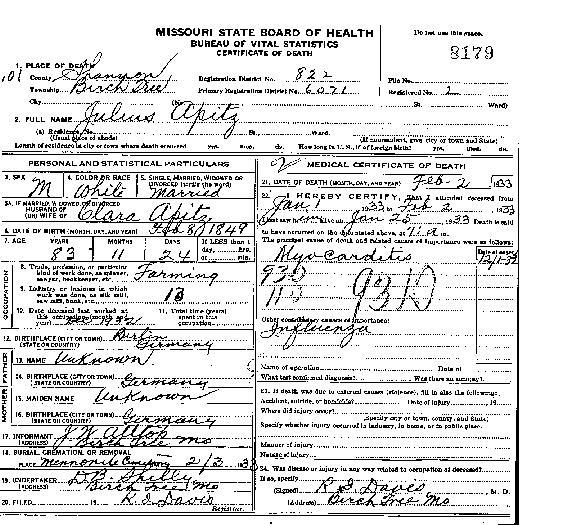 MISSOURI STATE BOARD OF HEALTH
BUREAU OF VITAL STATISTICS
CERTIFICATE OF DEATH
Do not use this space.
8179
1. PLACE OF DEATH
County Shannon
Registration District No. 822
File No.
Township Birch Tree
Primary Registration District No. 6071
Registered No. 2
City (No. St. Ward)
2. FULL NAME Julius Apitz
(a) Residence, No. St. Ward.
(Usual place of abode) (If nonresident, give city or town and State)
Length of residence in city or town where death occurred yrs. mos. ds. How long in U. S., if of foreign birth? yrs. mos. ds.
PERSONAL AND STATISTICAL PARTICULARS
3. SEX M
4. COLOR OR RACE White
5. SINGLE, MARRIED, WIDOWED OR DIVORCED (write the word) Married
5A. IF MARRIED, WIDOWED OR DIVORCED
HUSBAND OF
(OR) WIFE OF Clara Apitz
6. DATE OF BIRTH (MONTH, DAY, AND YEAR) Feb 8 1849
7. AGE YEARS 83 MONTHS 11 DAYS 24 If LESS than 1 day, hrs. or min.
OCCUPATION
8. Trade, profession, or particular kind of work done, as spinner, sawyer, bookkeeper, etc. Farming
9. Industry or business in which work was done, as silk mill, saw mill, bank, etc.
10. Date deceased last worked at this occupation (month and year) 1932
11. Total time (years) spent in this occupation
12. BIRTHPLACE (CITY OR TOWN) Berlin
(STATE OR COUNTRY) Germany
FATHER
13. NAME Unknown
14. BIRTHPLACE (CITY OR TOWN)
(STATE OR COUNTRY) Germany
MOTHER
15. MAIDEN NAME Unknown
16. BIRTHPLACE (CITY OR TOWN)
(STATE OR COUNTRY) Germany
17. INFORMANT
(ADDRESS) Birch Tree Mo
18. BURIAL, CREMATION, OR REMOVAL
PLACE Mennonite Cemetery 2/3
19. UNDERTAKER
(ADDRESS) Birch Tree Mo
20. FILED 19 R S Davis
Registrar.
MEDICAL CERTIFICATE OF DEATH
21. DATE OF DEATH (MONTH, DAY, AND YEAR) Feb 2 1933
22. I HEREBY CERTIFY, That I attended deceased from
Jan 1 1933 to Feb 2 1933
I last saw him alive on Jan 25 1933 Death is said
to have occurred on the date stated above, at
The principal cause of death and related causes of importance were as follows:
Date of onset
Myocarditis
93D
11B
93D
Other contributory causes of importance:
Influenza
Name of operation Date of
What test confirmed diagnosis? Was there an autopsy?
23. If death was due to external causes (violence), fill in also the following:
Accident, suicide, or homicide? Date of injury 19
Where did injury occur?
(Specify city or town, county and State)
Specify whether injury occurred in industry, in home, or in public place.
Manner of injury
Nature of injury
24. Was disease or injury in any way related to occupation of deceased?
If so, specify
(Signed) R S Davis M. D.
(Address) Birch Tree Mo